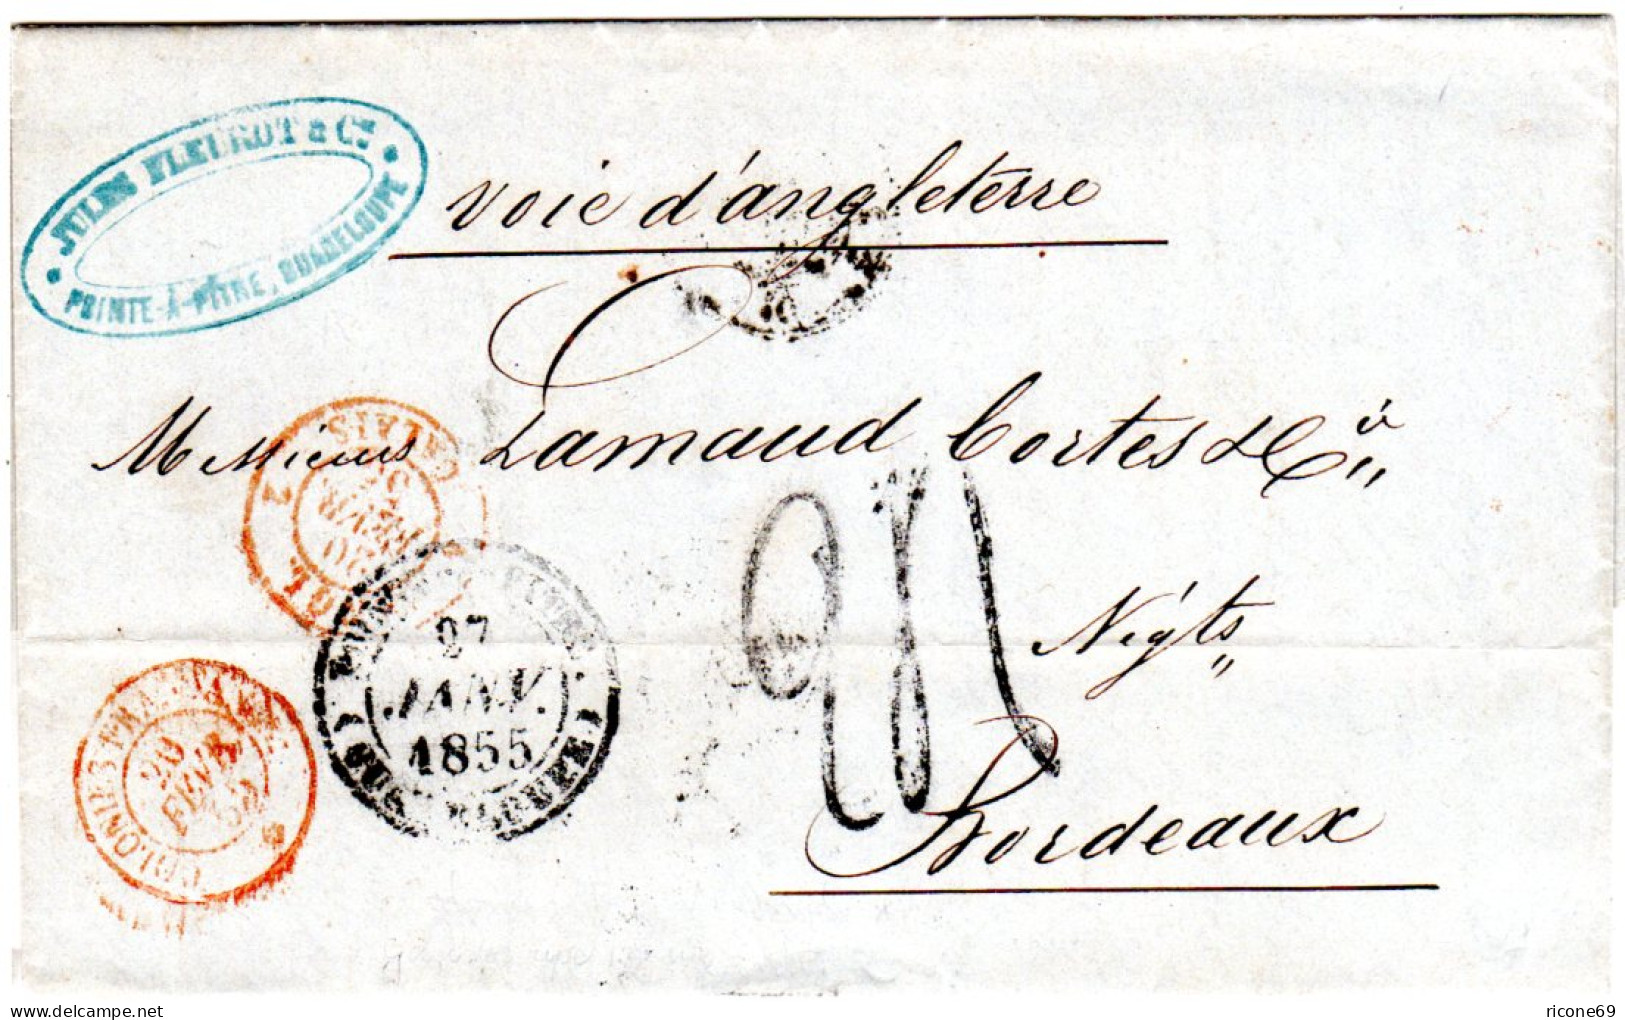 JULES FLEUROT & Cie
POINTE-A-PITRE, GUADELOUPE
Voie d'angleterre
Messieurs Lamaud Cortes & Cie
CALAIS
20
FEVR
27
JANV.
1855
POINTE
COLONIES FRA
20
FEVR
55
Négts
Bordeaux
ricone69